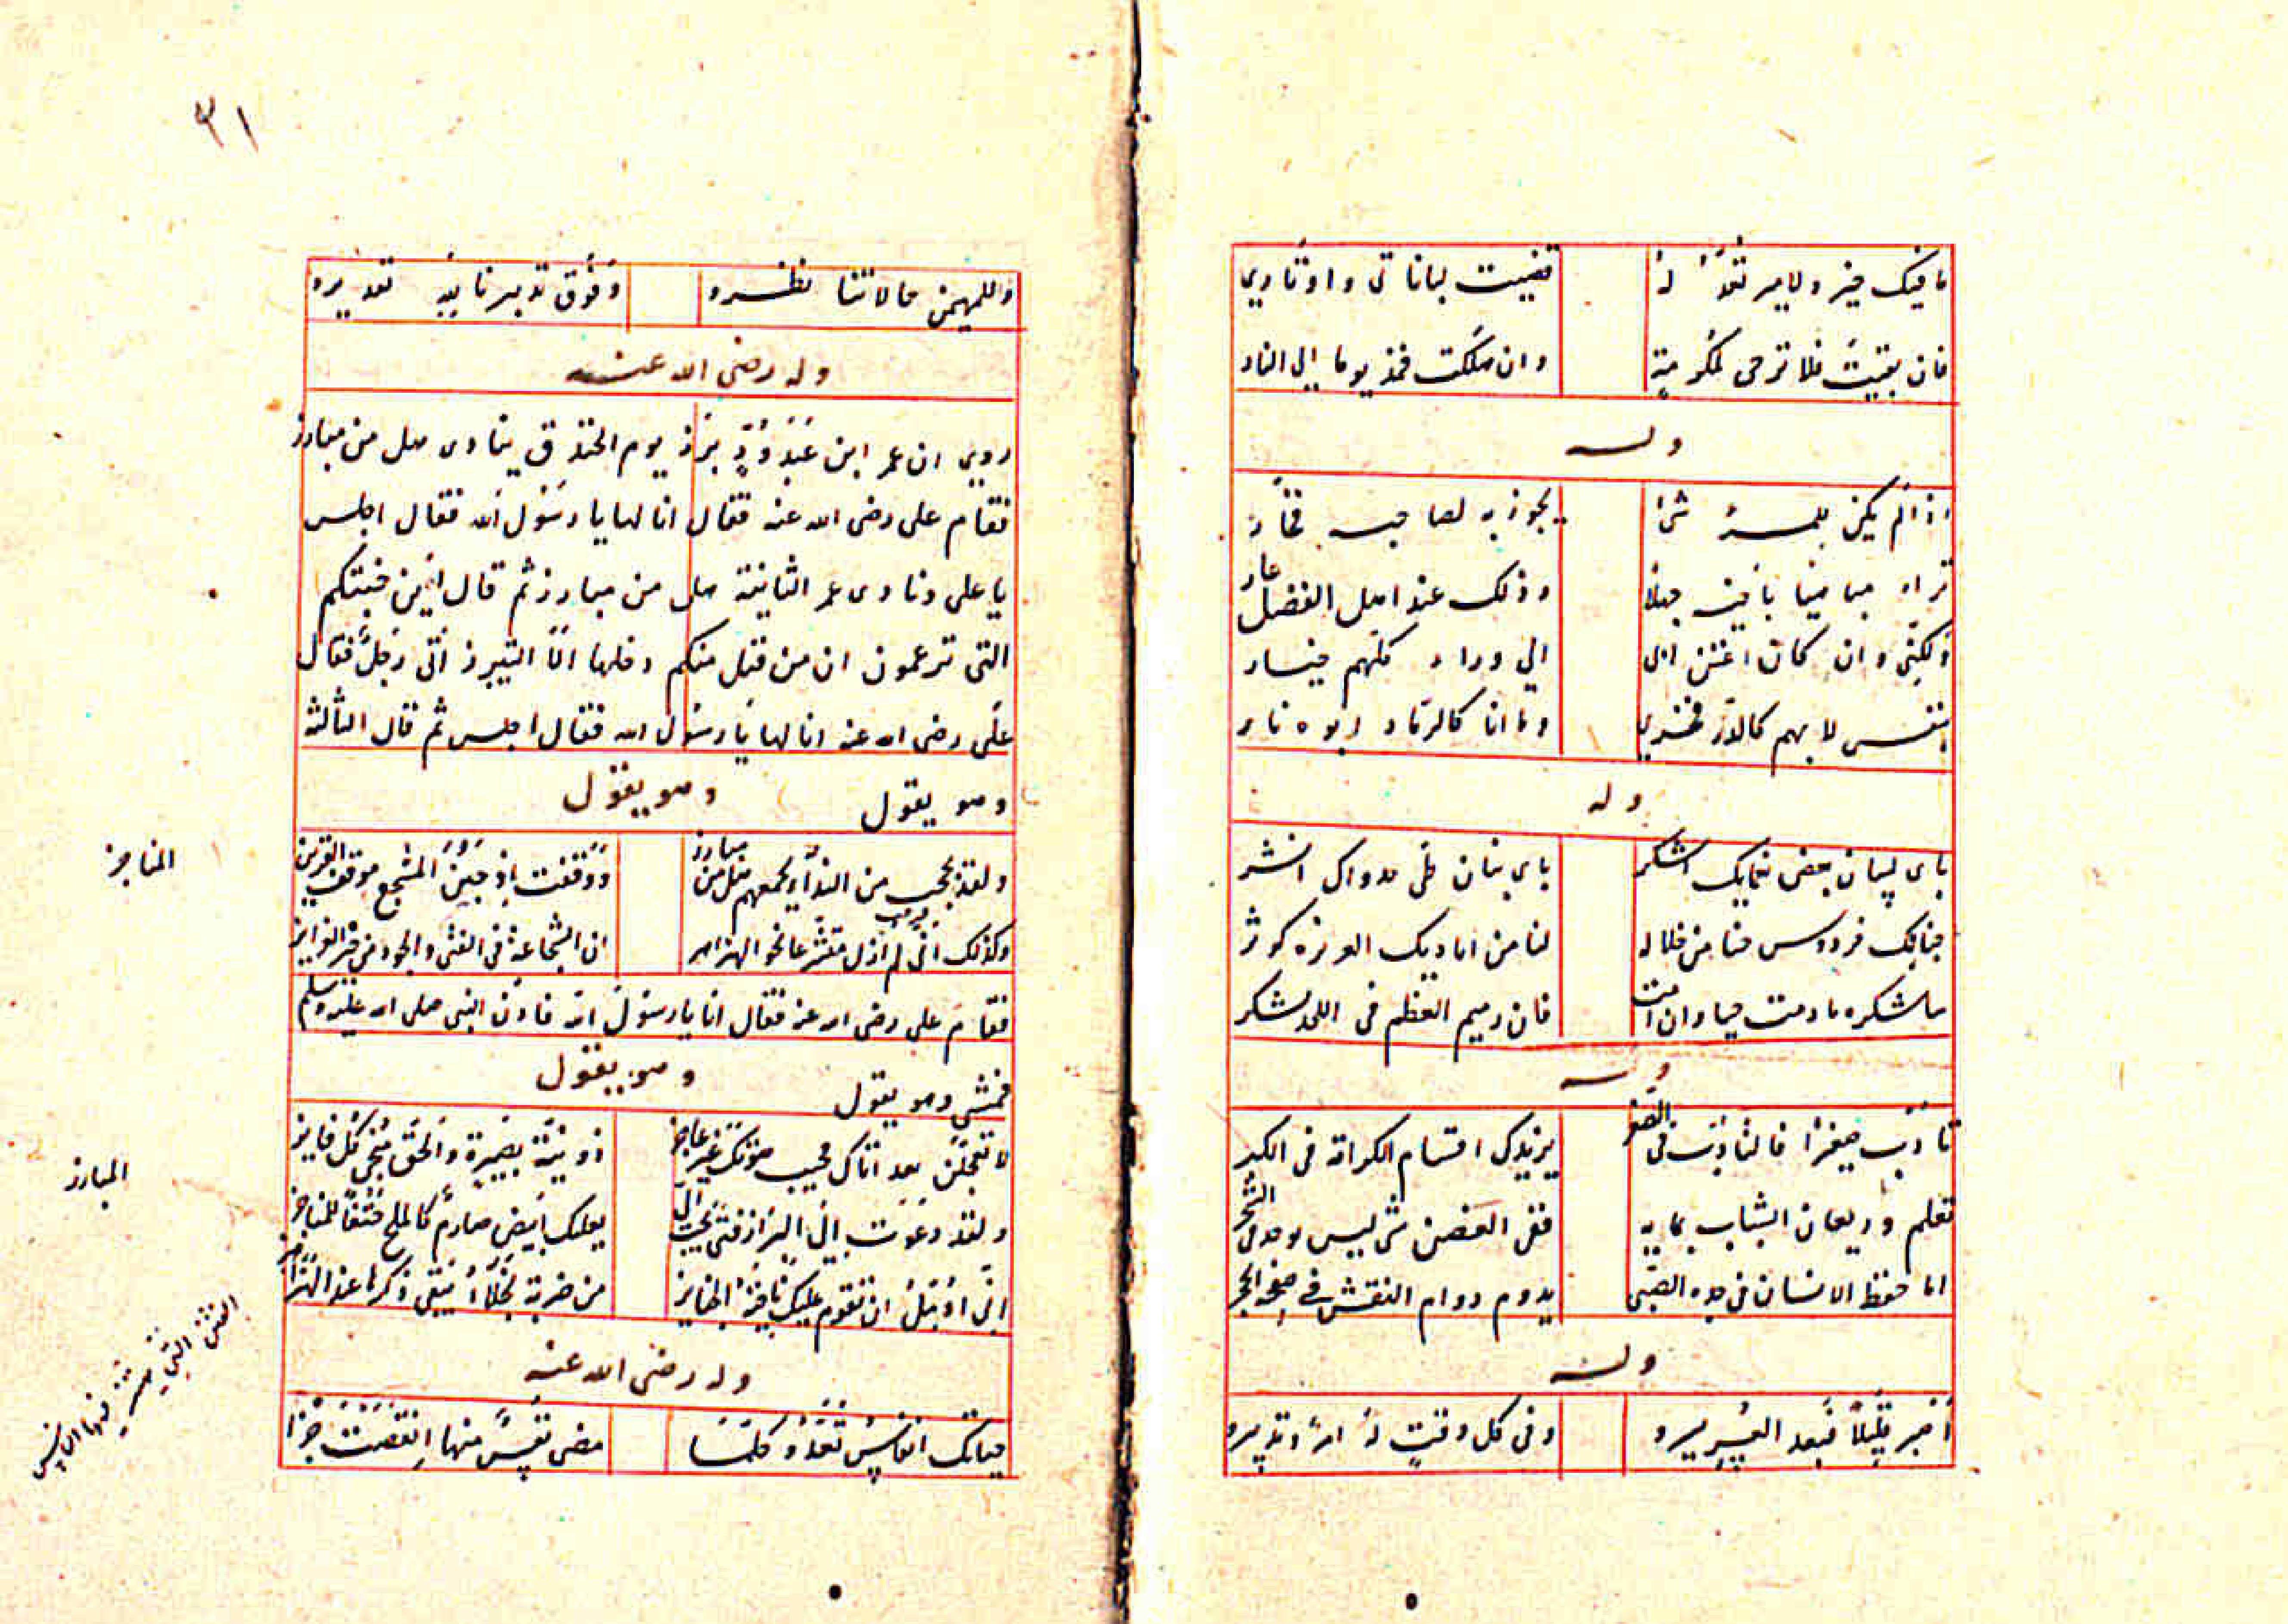 ما فيك خير ولا مير تعد له قضيت لباناتى واوتارى
فان بقيت فلا ترجى لمكرمة وان هلكت فمذ يوما الى النار
وله
اذا لم يكن للمرء شئ يجوز به لصاحبه فخار
تراه مباهيا بابيه جهلا وذلك عند اهل الفضل عار
ولكنى وان كان اغتنى ابى الى وراء كلهم خيار
بنفسى لا بهم كالدر فخرى وما انا كالرماد ابوه نار
وله
باى لسان بعض نعمايك اشكر باى بنان طى جدواك انشر
جنابك فردوس لنا من اياديك الغزيره كوثر
ساشكره ما دمت حيا وان امت فان رميم العظم فى اللحد لشكر
وله
تادب صغيرا فالتادب فى الصغر يزيدك اقسام الكرامة فى الكبر
تعلم وريعان الشباب بمايه ففى الغصن شى ليس يوجد فى الشجر
اما حفظ الانسان فى بدء الصبى يدوم دوام النقش فى صفحة الحجر
وله
اصبر قليلا فبعد العسر يسر وفى كل وقت له امر وتدبير
٣١
وللمهيمن فى حالاتنا نظر وفوق تدبيرنا لله تقدير
وله رضى الله عنه
روي ان عمر ابن عَبْدِ وُدٍّ برز يوم الخندق ينادى هل من مبارز
فقام على رضى الله عنه فقال انا لها يا رسول الله فقال اجلس
يا على ونادى عمر الثانية هل من مبارز ثم قال اين جنتكم
التى تزعمون ان من قتل منكم دخلها افلا يبرز الى رجل فقال
على رضى الله عنه انا لها يا رسول الله فقال اجلس ثم قال الثالثة
وهو يقول وهو يقول
ولقد بححت من النداء لجمعهم هل من مبارز ووقفت اذ جبن المشجع موقف القرن
المناجز
وكذلك انى لم ازل متسرعا نحو الهزاهز ان الشجاعة فى الفتى والجود من خير الغرايز
فقام على رضى الله عنه فقال انا يا رسول الله فاذن النبى صلى الله عليه وسلم
فمشى وهو يقول وهو يقول
لا تعجلن فقد اتاك مجيب صوتك غير عاجز ذو نية وبصيرة والحق منجى كل فايز
المبارز
ولقد دعوت الى البراز فتى يجيب الى يعليك ابيض صارم كالملح حتفا للمناجز
انى اؤمل ان تقوم عليك نايحة الجنايز من ضربة نجلاء يبقى ذكرها عند الهزاهز
وله رضى الله عنه
حياتك انفاس تعد وكلما مضى نفس منها انتقصت جزا